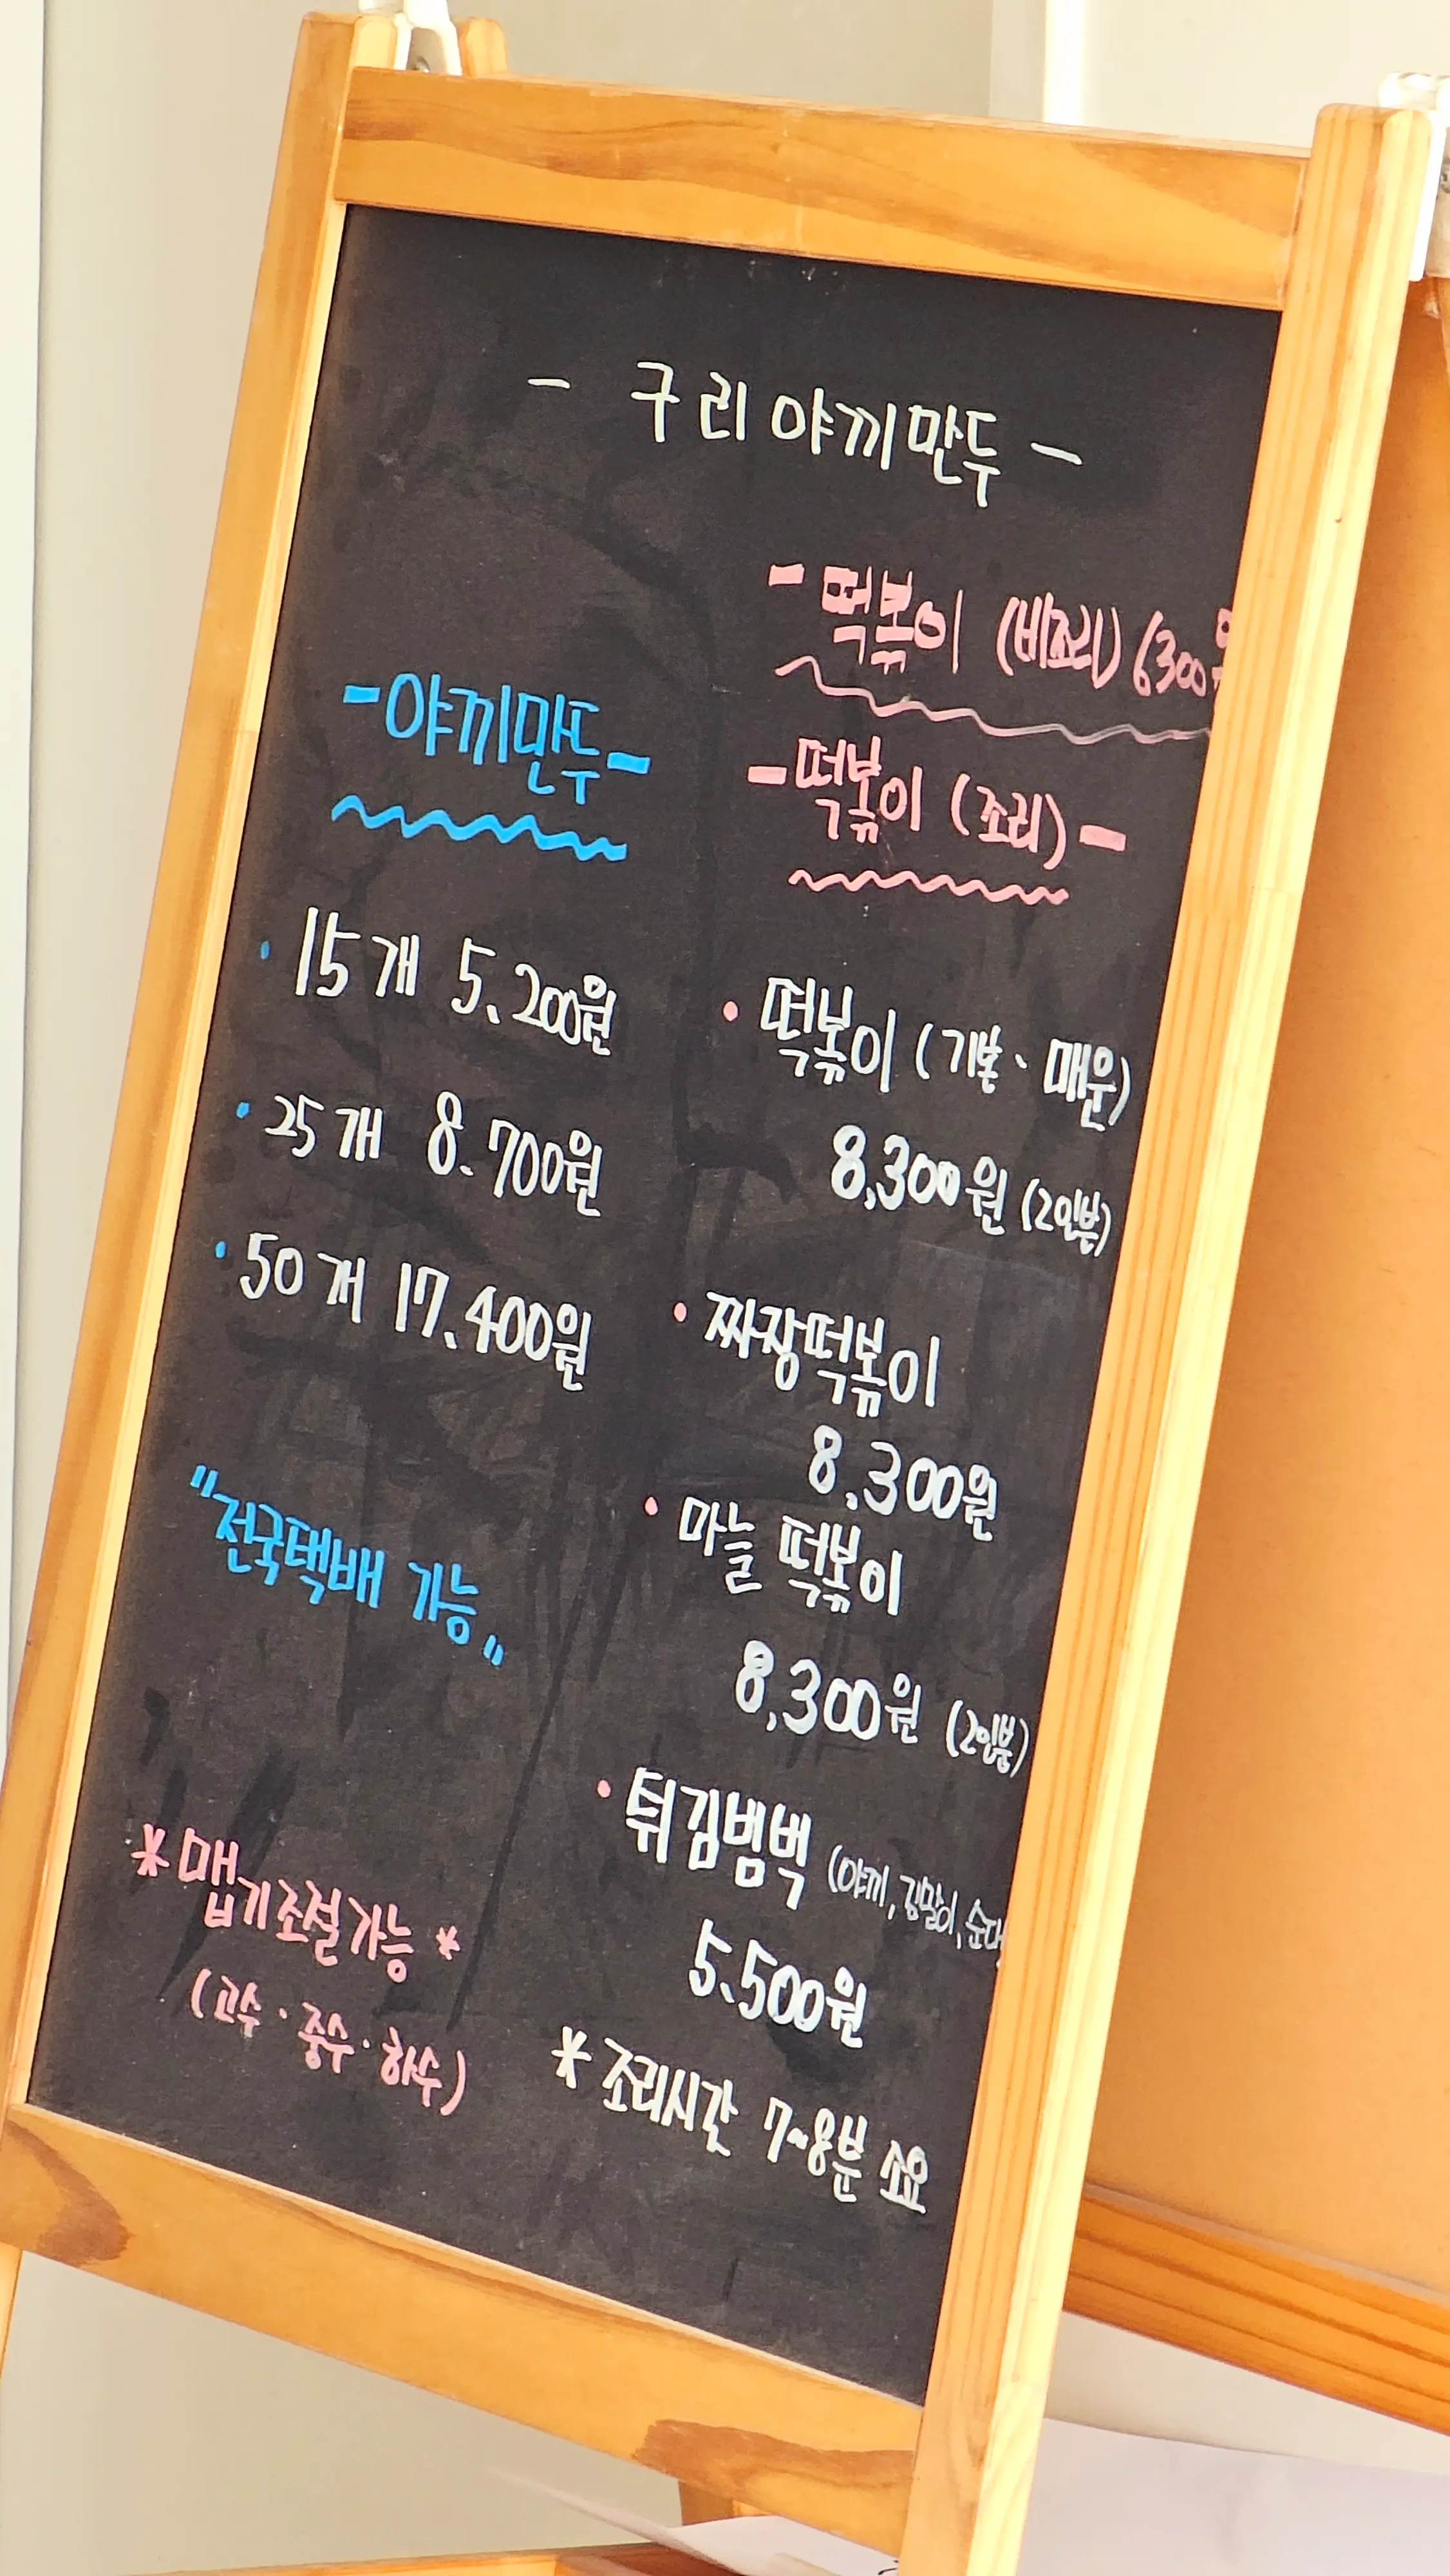 - 구리야끼만두 -
- 떡볶이 (비조리) 6300원
- 야끼만두 -
- 떡볶이 (조리) -
· 15개 5,200원
· 25개 8.700원
· 50개 17,400원
"전국택배 가능"
* 맵기조절가능 *
(고수 · 중수 · 하수)
· 떡볶이 (기본、매운)
8,300원 (2인분)
· 짜장떡볶이
8,300원
· 마늘 떡볶이
8,300원 (2인분)
· 튀김범벅 (야끼, 김말이, 순대
5,500원
* 조리시간 7~8분 소요